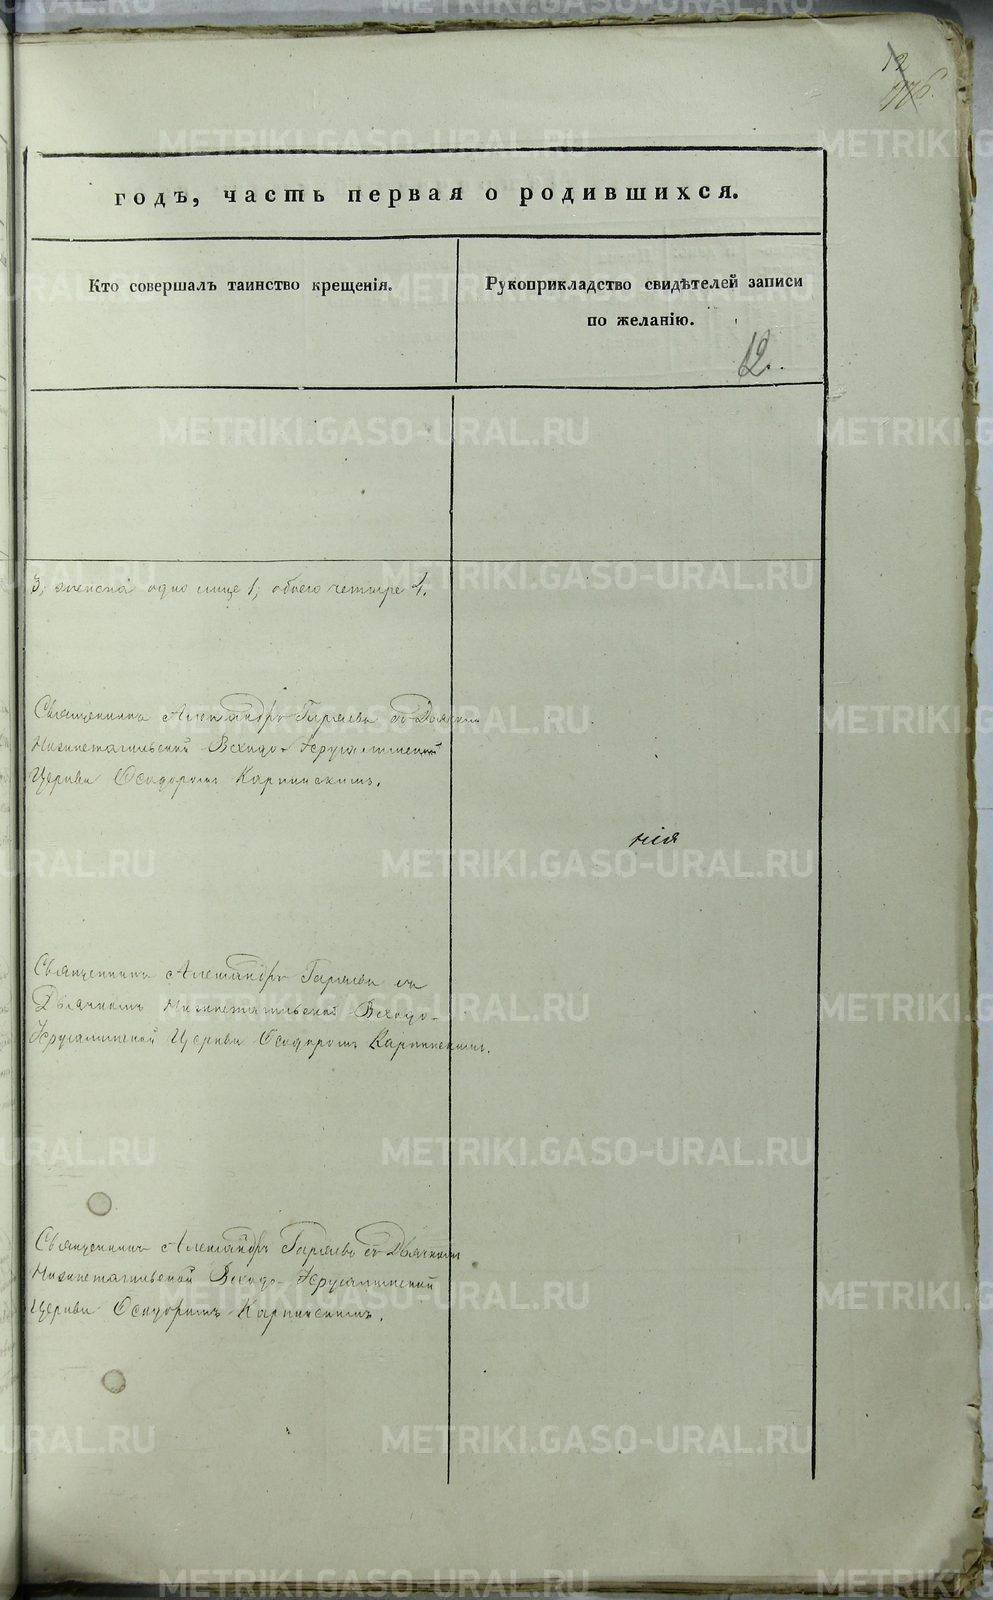 12
годъ, часть первая о родившихся.
Кто совершалъ таинство крещенія.
Рукоприкладство свидѣтелей записи
по желанію.
12.
3, женска одно лице 1, обоего четыре 4.
Священникъ Александръ Гаряевъ съ Дьячкомъ
Нижнетагильской Входо-Іерусалимской
Церкви Ѳеодоромъ Карпинскимъ.
нія
Священникъ Александръ Гаряевъ съ
Дьячкомъ Нижнетагильской Входо-
Іерусалимской Церкви Ѳеодоромъ Карпинскимъ.
Священникъ Александръ Гаряевъ съ Дьячкомъ
Нижнетагильской Входо-Іерусалимской
Церкви Ѳеодоромъ Карпинскимъ.
METRIKI.GASO-URAL.RU